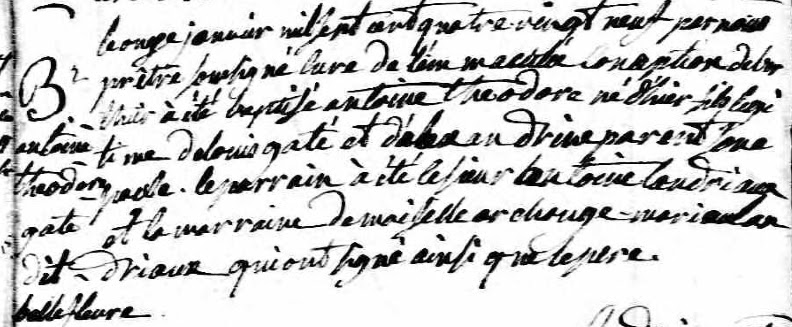 le onze janvier mil sept cent quatre vingt neuf par nous
prêtre soussigné curé de l'im maculé Conception de ber
thier à été baptisé antoine theodore né d'hier fils legi
time de louis gaté et d'alexandrine parent sone
pade. le parrain à été le sieur antoine landriaux
et la marraine demoiselle archange marie lan
driaux qui ont signé ainsi que le pere.
Br
antoine
theodore
gaté
dit
bellefleure